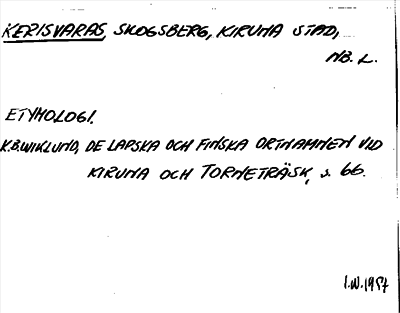 KERISVARAS, SKOGSBERG, KIRUNA STAD,
NB. L.
ETYMOLOGI.
K.B. WIKLUND, DE LAPSKA OCH FINSKA ORTNAMNEN VID
KIRUNA OCH TORNETRÄSK, s. 66.
I.W. 1957